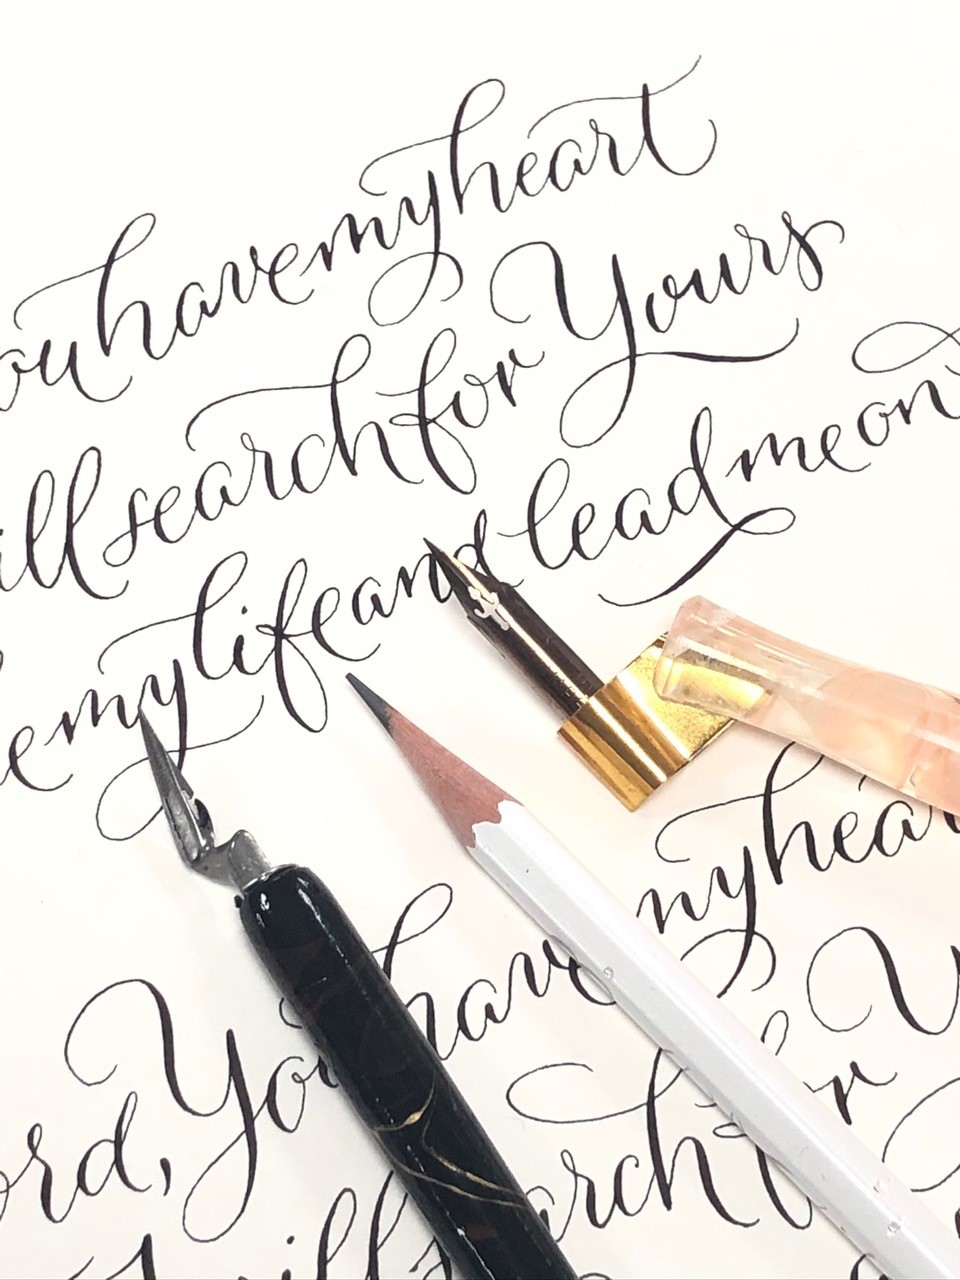 ou have my heart
ill search for Yours
e my life and lead me on
ord, You have my hear
ill search for Y